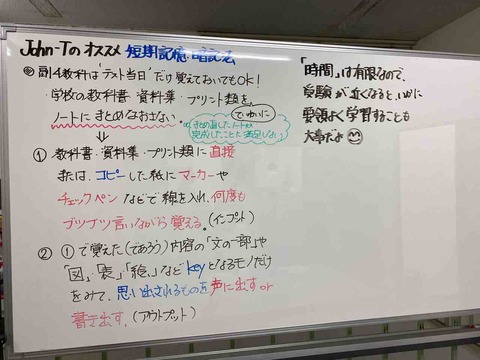 John-Tのオススメ 短期記憶・暗記法
◎副4教科は"テスト当日"だけ覚えておいてもOK!
・学校の教科書・資料集・プリント類を、
ノートにまとめなおさない。
ていねいに
まとめ直したノートが
完成したことに満足しない
① 教科書・資料集・プリント類に直接
または、コピーした紙にマーカーや
チェックペンなどで線を入れ、何度も
ブツブツ言いながら覚える。(インプット)
② ①で覚えた(であろう)内容の「文の一部」や
「図」「表」「絵」などkeyとなるモノだけ
をみて、思い出されるものを声に出すor
書き出す。(アウトプット)
「時間」は有限なので、
受験が近くなると、いかに
要領よく学習することも
大事だよ